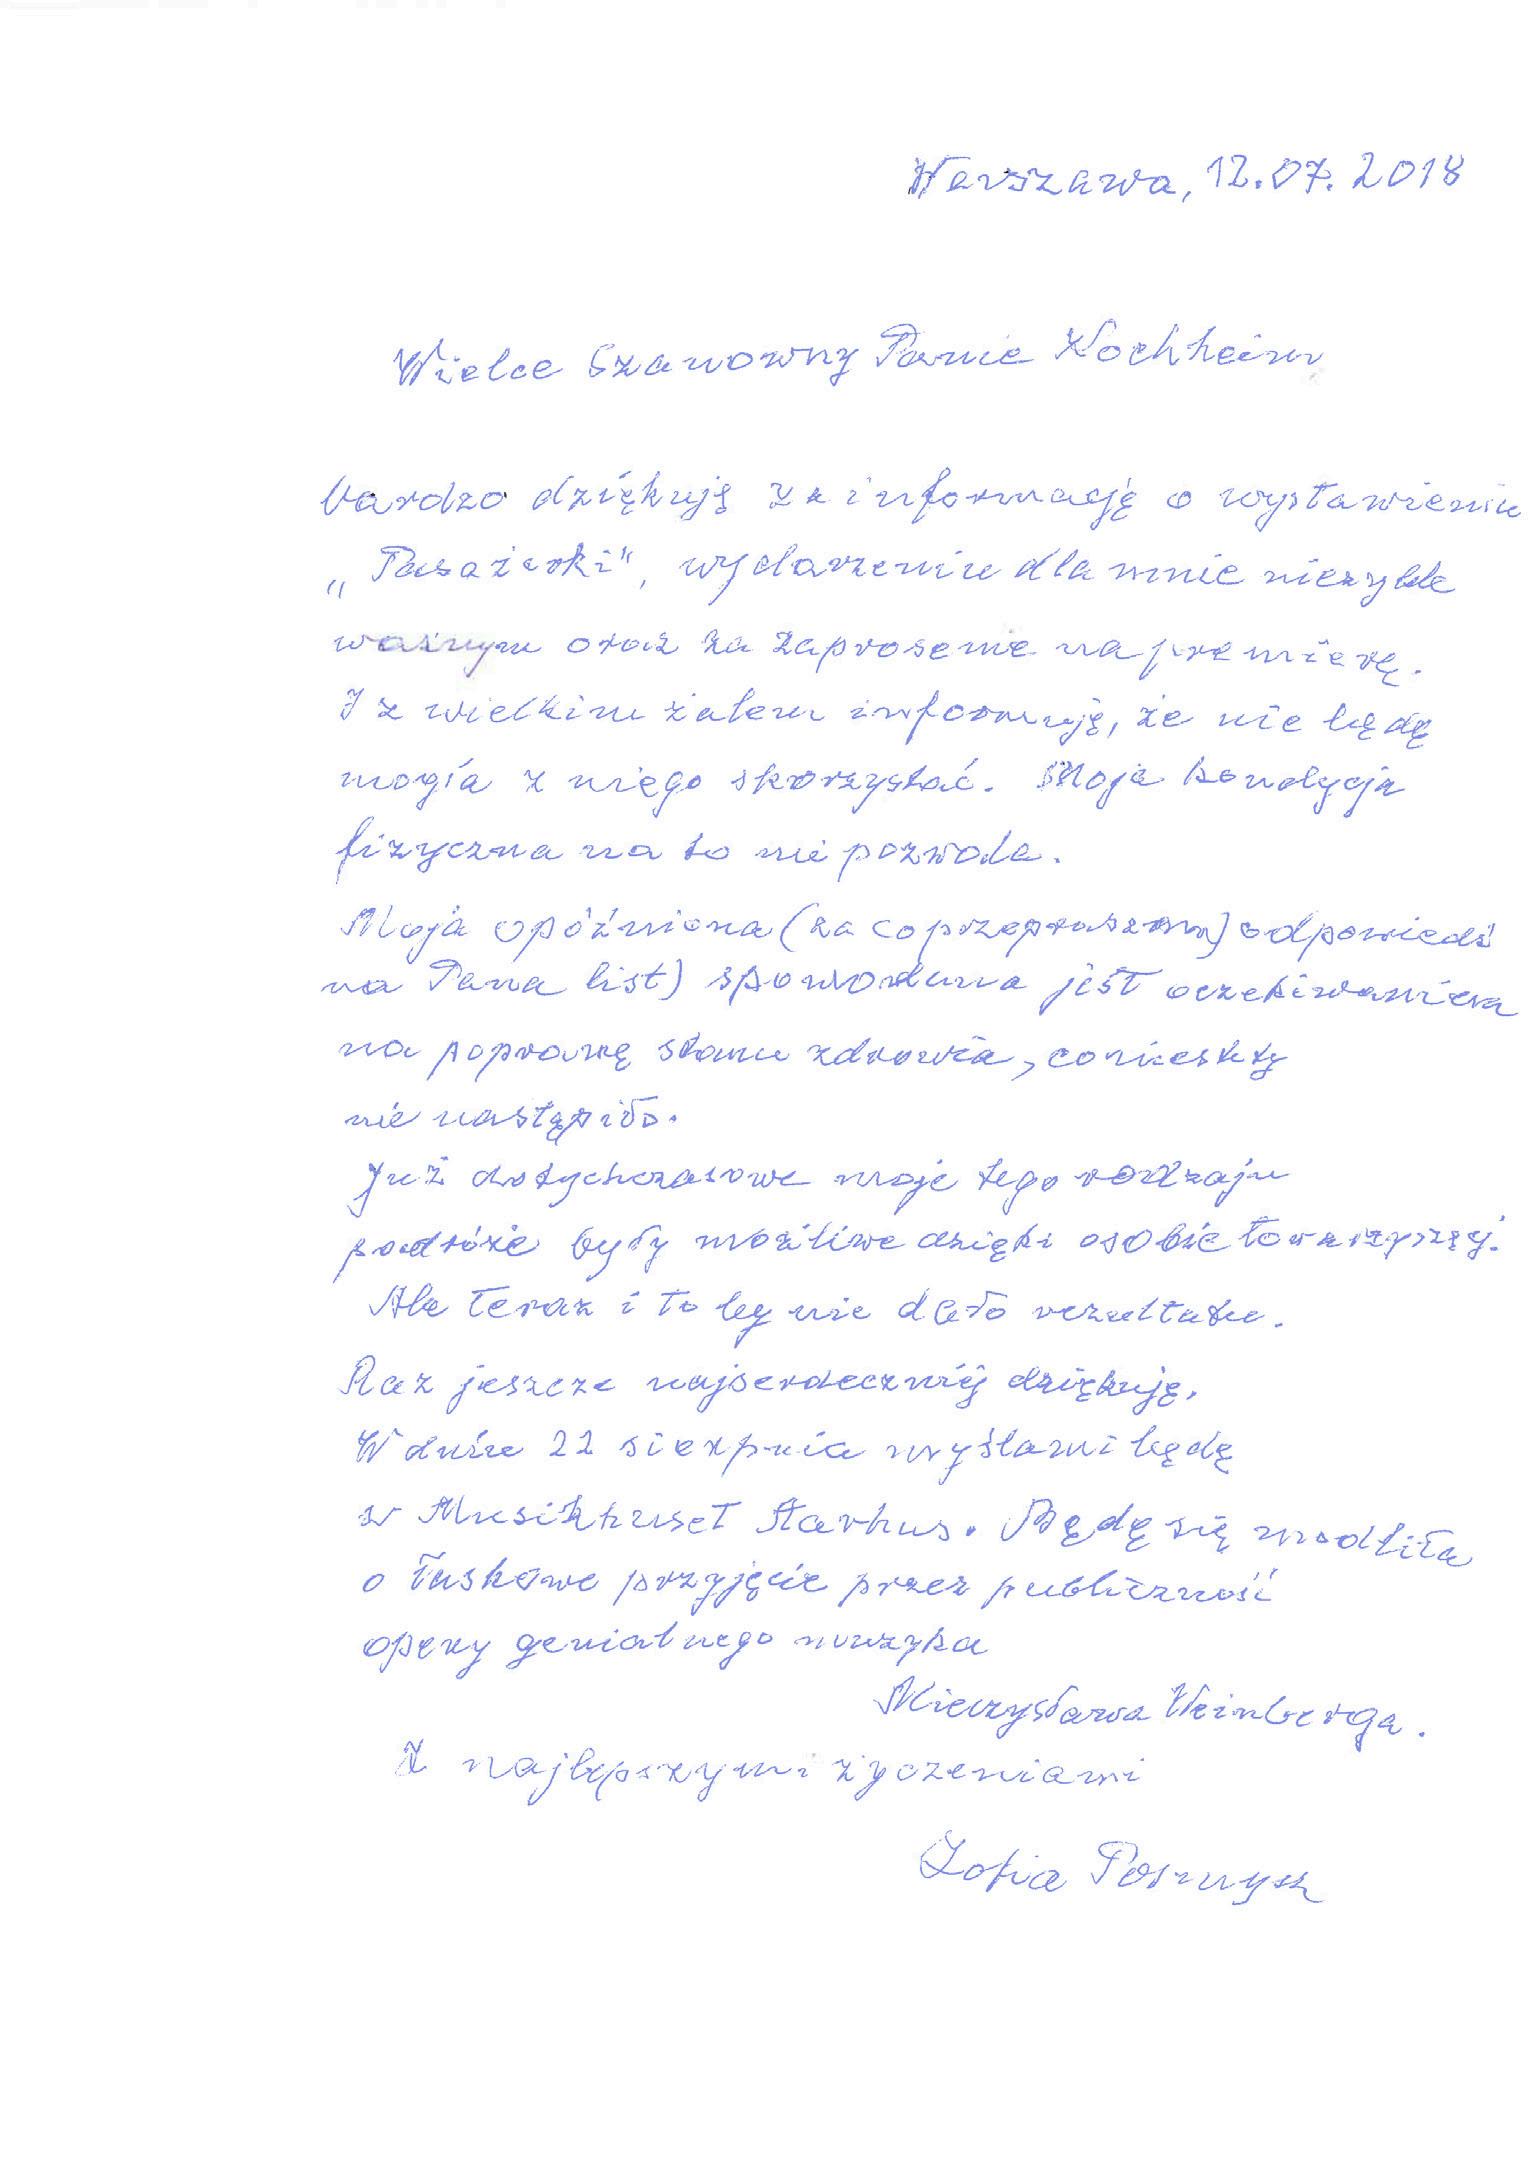 Warszawa, 12.07.2018
Wielce Szanowny Panie Kochheim
bardzo dziękuję za informację o wystawieniu
„Pasażerki", wydarzeniu dla mnie niezwykle
ważnym oraz za zaprosenie na premierę.
I z wielkim żalem informuję, że nie będę
mogła z niego skorzystać. Moja kondycja
fizyczna na to nie pozwala.
Moja opóźniona (za co przepraszam) odpowiedź
na Pana list) spowodowana jest oczekiwaniem
na poprawę stanu zdrowia, co niestety
nie nastąpiło.
Już dotychczasowe moje tego rodzaju
podróże były możliwe dzięki osobie towarzyszącej.
Ale teraz i to by nie dało rezultatu.
Raz jeszcze najserdeczniej dziękuję.
W dniu 22 sierpnia myślami będę
w Musikhuset Aarhus. Będę się modliła
o łaskawe przyjęcie przez publiczność
opery genialnego muzyka
Mieczysława Weinberga.
Z najlepszymi życzeniami
Zofia Posmysz